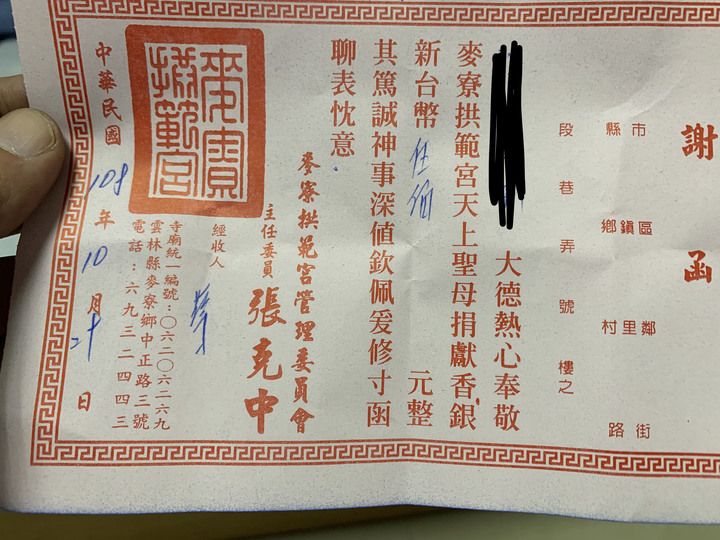 謝函
市區鄰街
鎮里
縣鄉村路
段巷弄號樓之
大德熱心奉敬
麥寮拱範宮天上聖母捐獻香銀
新台幣 伍佰 元整
其篤誠神事深值欽佩爰修寸函
聊表忱意
麥寮拱範宮管理委員會
主任委員 張克中
經收人
寺廟統一編號：〇六二〇六二六九
雲林縣麥寮鄉中正路三號
電話：六九三二四四三
麥寮
拱範宮
中華民國 108 年 10 月 日